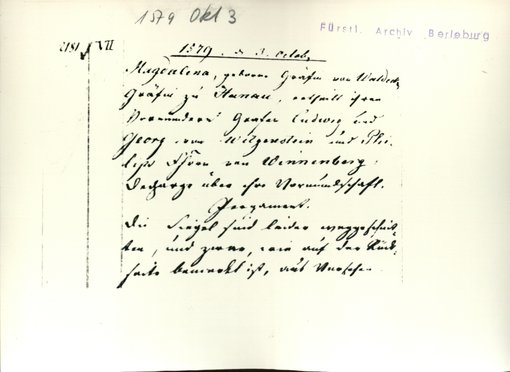 1579 Okt 3
Fürstl. Archiv Berleburg
VII
1579. d. 3. Octob.
Magdalena, geborene Gräfin von Waldeck,
Gräfin zu Hanau, ertheilt ihren
Vormündern Grafen Ludwig und
Georg von Witgenstein und Phi-
lips Hhern von Wennenberg
Decharge über ihre Vormundschaft.
Pergament.
Die Siegel sind leider weggeschnit-
ten, und zwar, wie auf der Rück-
seite bemerkt ist, aus Versehen